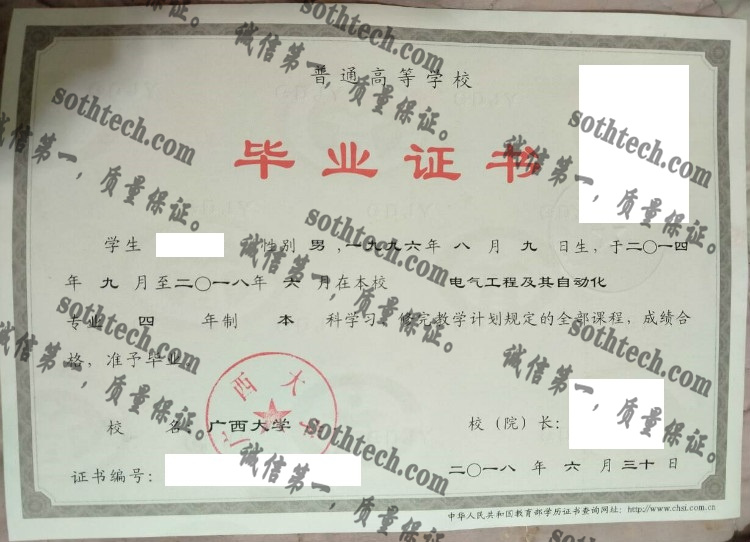 普通高等学校
毕业证书
学生 性别 男，一九九六年 八 月 九 日生，于二〇一四
年 九 月至二〇一八年 六 月在本校 电气工程及其自动化
专业 四 年制 本 科学习，修完教学计划规定的全部课程，成绩合
格，准予毕业。
广西大学
校 名：广西大学
校（院）长：
证书编号：
二〇一八 年 六 月 三十 日
中华人民共和国教育部学历证书查询网址：http://www.chsi.com.cn
sothtech.com
诚信第一，质量保证。
sothtech.com
诚信第一，质量保证。
sothtech.com
诚信第一，质量保证。
sothtech.com
诚信第一，质量保证。
sothtech.com
诚信第一，质量保证。
sothtech.com
诚信第一，质量保证。
sothtech.com
诚信第一，质量保证。
sothtech.com
诚信第一，质量保证。